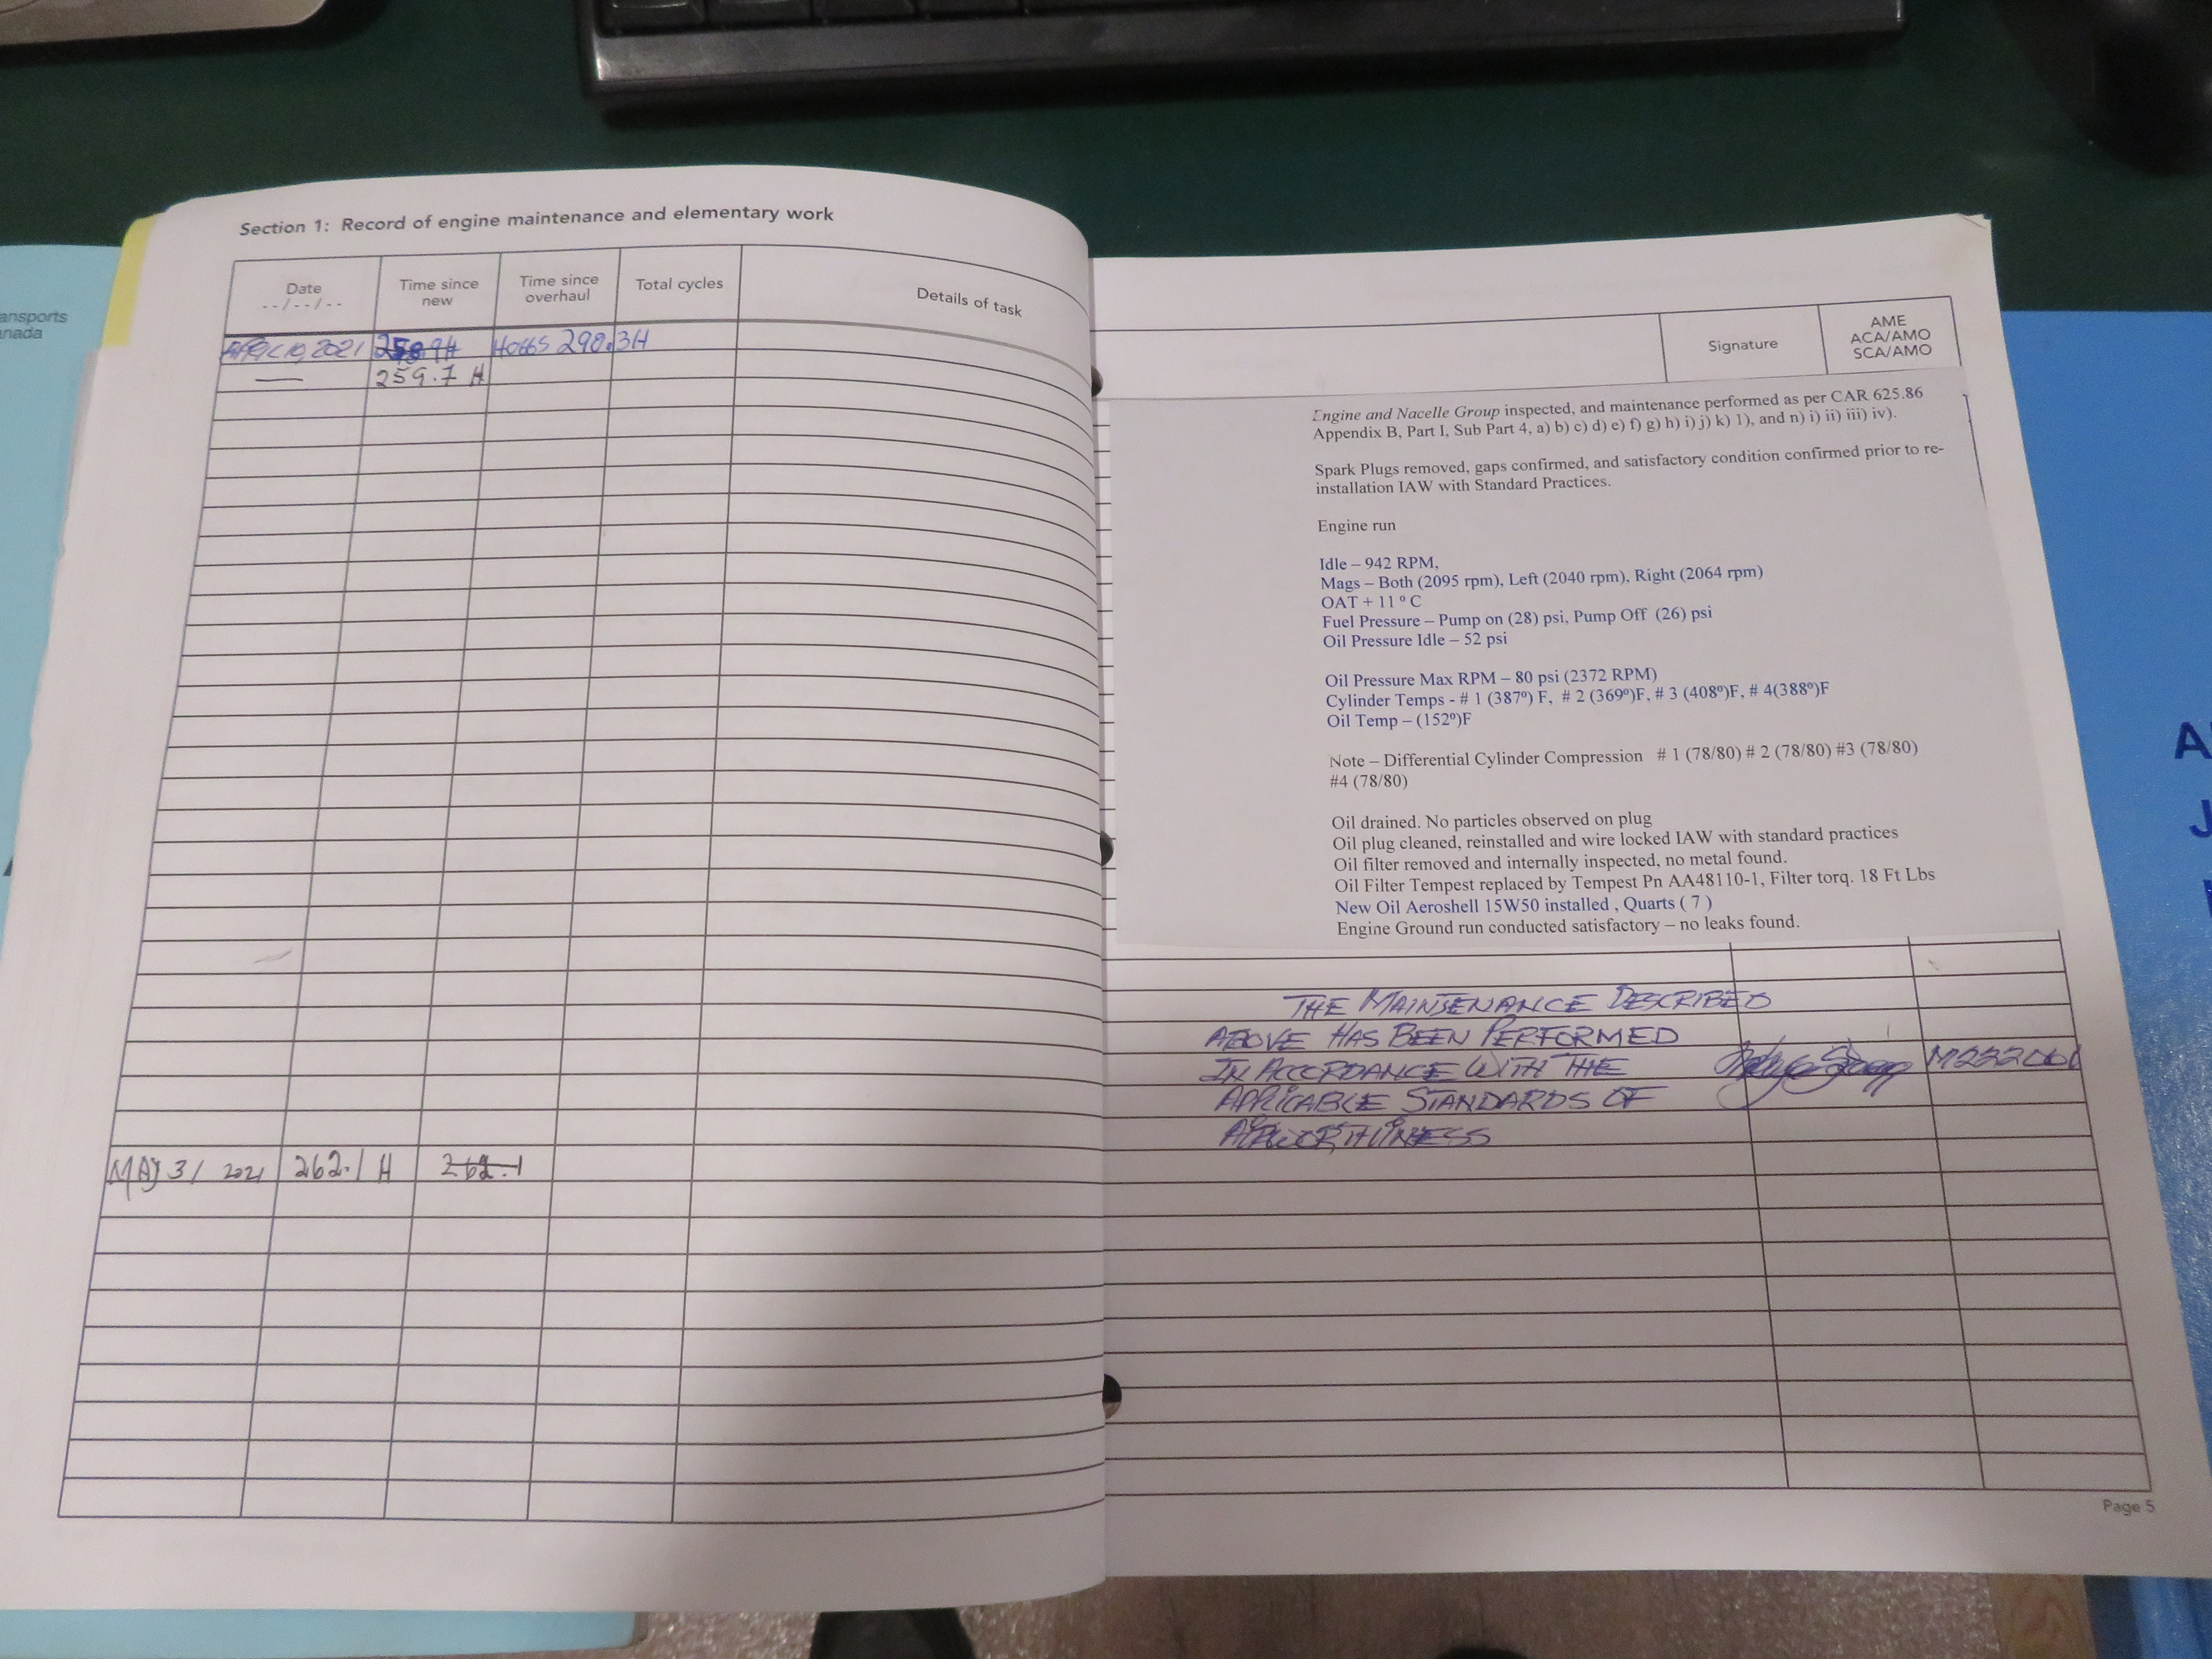 ansports
nada
Section 1: Record of engine maintenance and elementary work
Date
--/--/--
Time since
new
Time since
overhaul
Total cycles
Details of task
Signature
AME
ACA/AMO
SCA/AMO
2021 Hobbs 290.3H
— 259.7 H
Engine and Nacelle Group inspected, and maintenance performed as per CAR 625.86
Appendix B, Part I, Sub Part 4, a) b) c) d) e) f) g) h) i) j) k) 1), and n) i) ii) iii) iv).
Spark Plugs removed, gaps confirmed, and satisfactory condition confirmed prior to re-
installation IAW with Standard Practices.
Engine run
Idle – 942 RPM,
Mags – Both (2095 rpm), Left (2040 rpm), Right (2064 rpm)
OAT + 11 º C
Fuel Pressure – Pump on (28) psi, Pump Off (26) psi
Oil Pressure Idle – 52 psi
Oil Pressure Max RPM – 80 psi (2372 RPM)
Cylinder Temps - # 1 (387º) F, # 2 (369º)F, # 3 (408º)F, # 4(388º)F
Oil Temp – (152º)F
Note – Differential Cylinder Compression # 1 (78/80) # 2 (78/80) #3 (78/80)
#4 (78/80)
Oil drained. No particles observed on plug
Oil plug cleaned, reinstalled and wire locked IAW with standard practices
Oil filter removed and internally inspected, no metal found.
Oil Filter Tempest replaced by Tempest Pn AA48110-1, Filter torq. 18 Ft Lbs
New Oil Aeroshell 15W50 installed , Quarts ( 7 )
Engine Ground run conducted satisfactory – no leaks found.
THE MAINTENANCE DESCRIBED
ABOVE HAS BEEN PERFORMED
IN ACCORDANCE WITH THE
APPLICABLE STANDARDS OF
AIRWORTHINESS
MAY 3/ 2021 262.1 H 262.1
Page 5
A
J